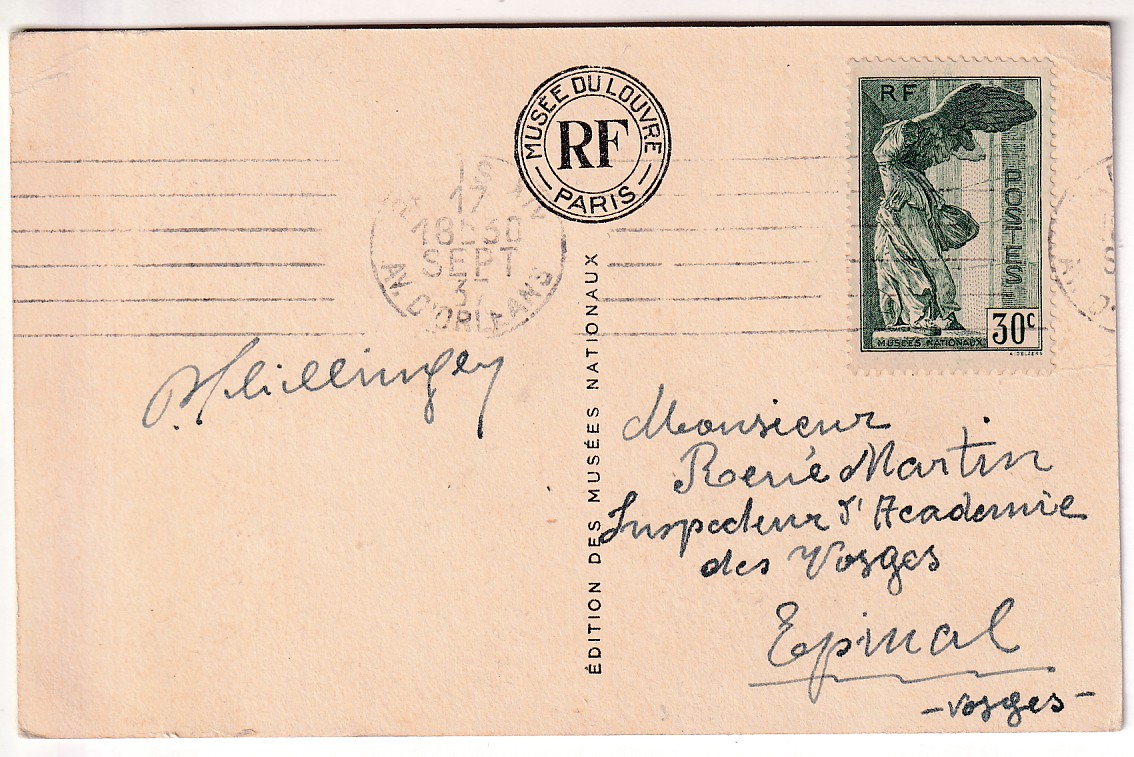 MUSÉE DU LOUVRE
RF
PARIS
RF
POSTES
30c
MUSÉES NATIONAUX
17
18H30
SEPT
37
AV. D'ORLÉANS
ÉDITION DES MUSÉES NATIONAUX
Monsieur
René Martin
Inspecteur d'Académie
des Vosges
Epinal
-Vosges-